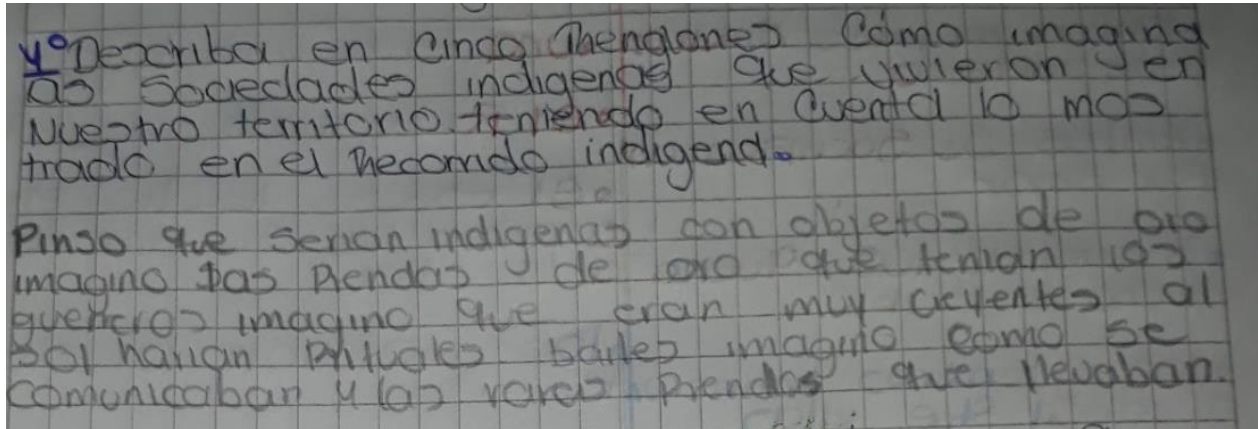 4° Describa en cinco renglones cómo imagina
as sociedades indigenas que vivieron en
Nuestro territorio teniendo en cuenta lo mos
trado en el recorrido indigena.
Pinso que serian indigenas con objetos de oro
imagino las prendas de oro que tenian los
guerreros imagino que eran muy creyentes al
sol hacian rituales bailes imagino como se
comunicaban y las raras prendas que llevaban.